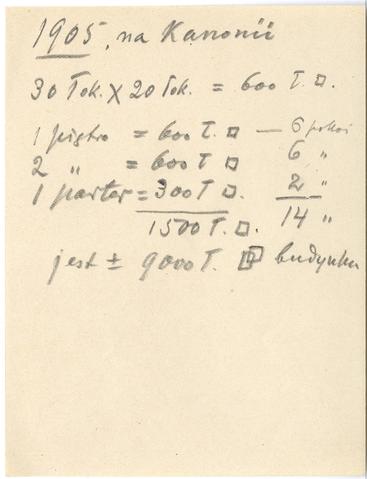 1905, na Kanonii
30 Tok. X 20 Tok. = 600 T. □.
1 piętro = 600 T. □ — 6 pokoi
2 „ = 600 T □ 6 „
1 parter = 300 T □. 2 „
1500 T. □. 14 „
jest ± 9000 T. □ budynku